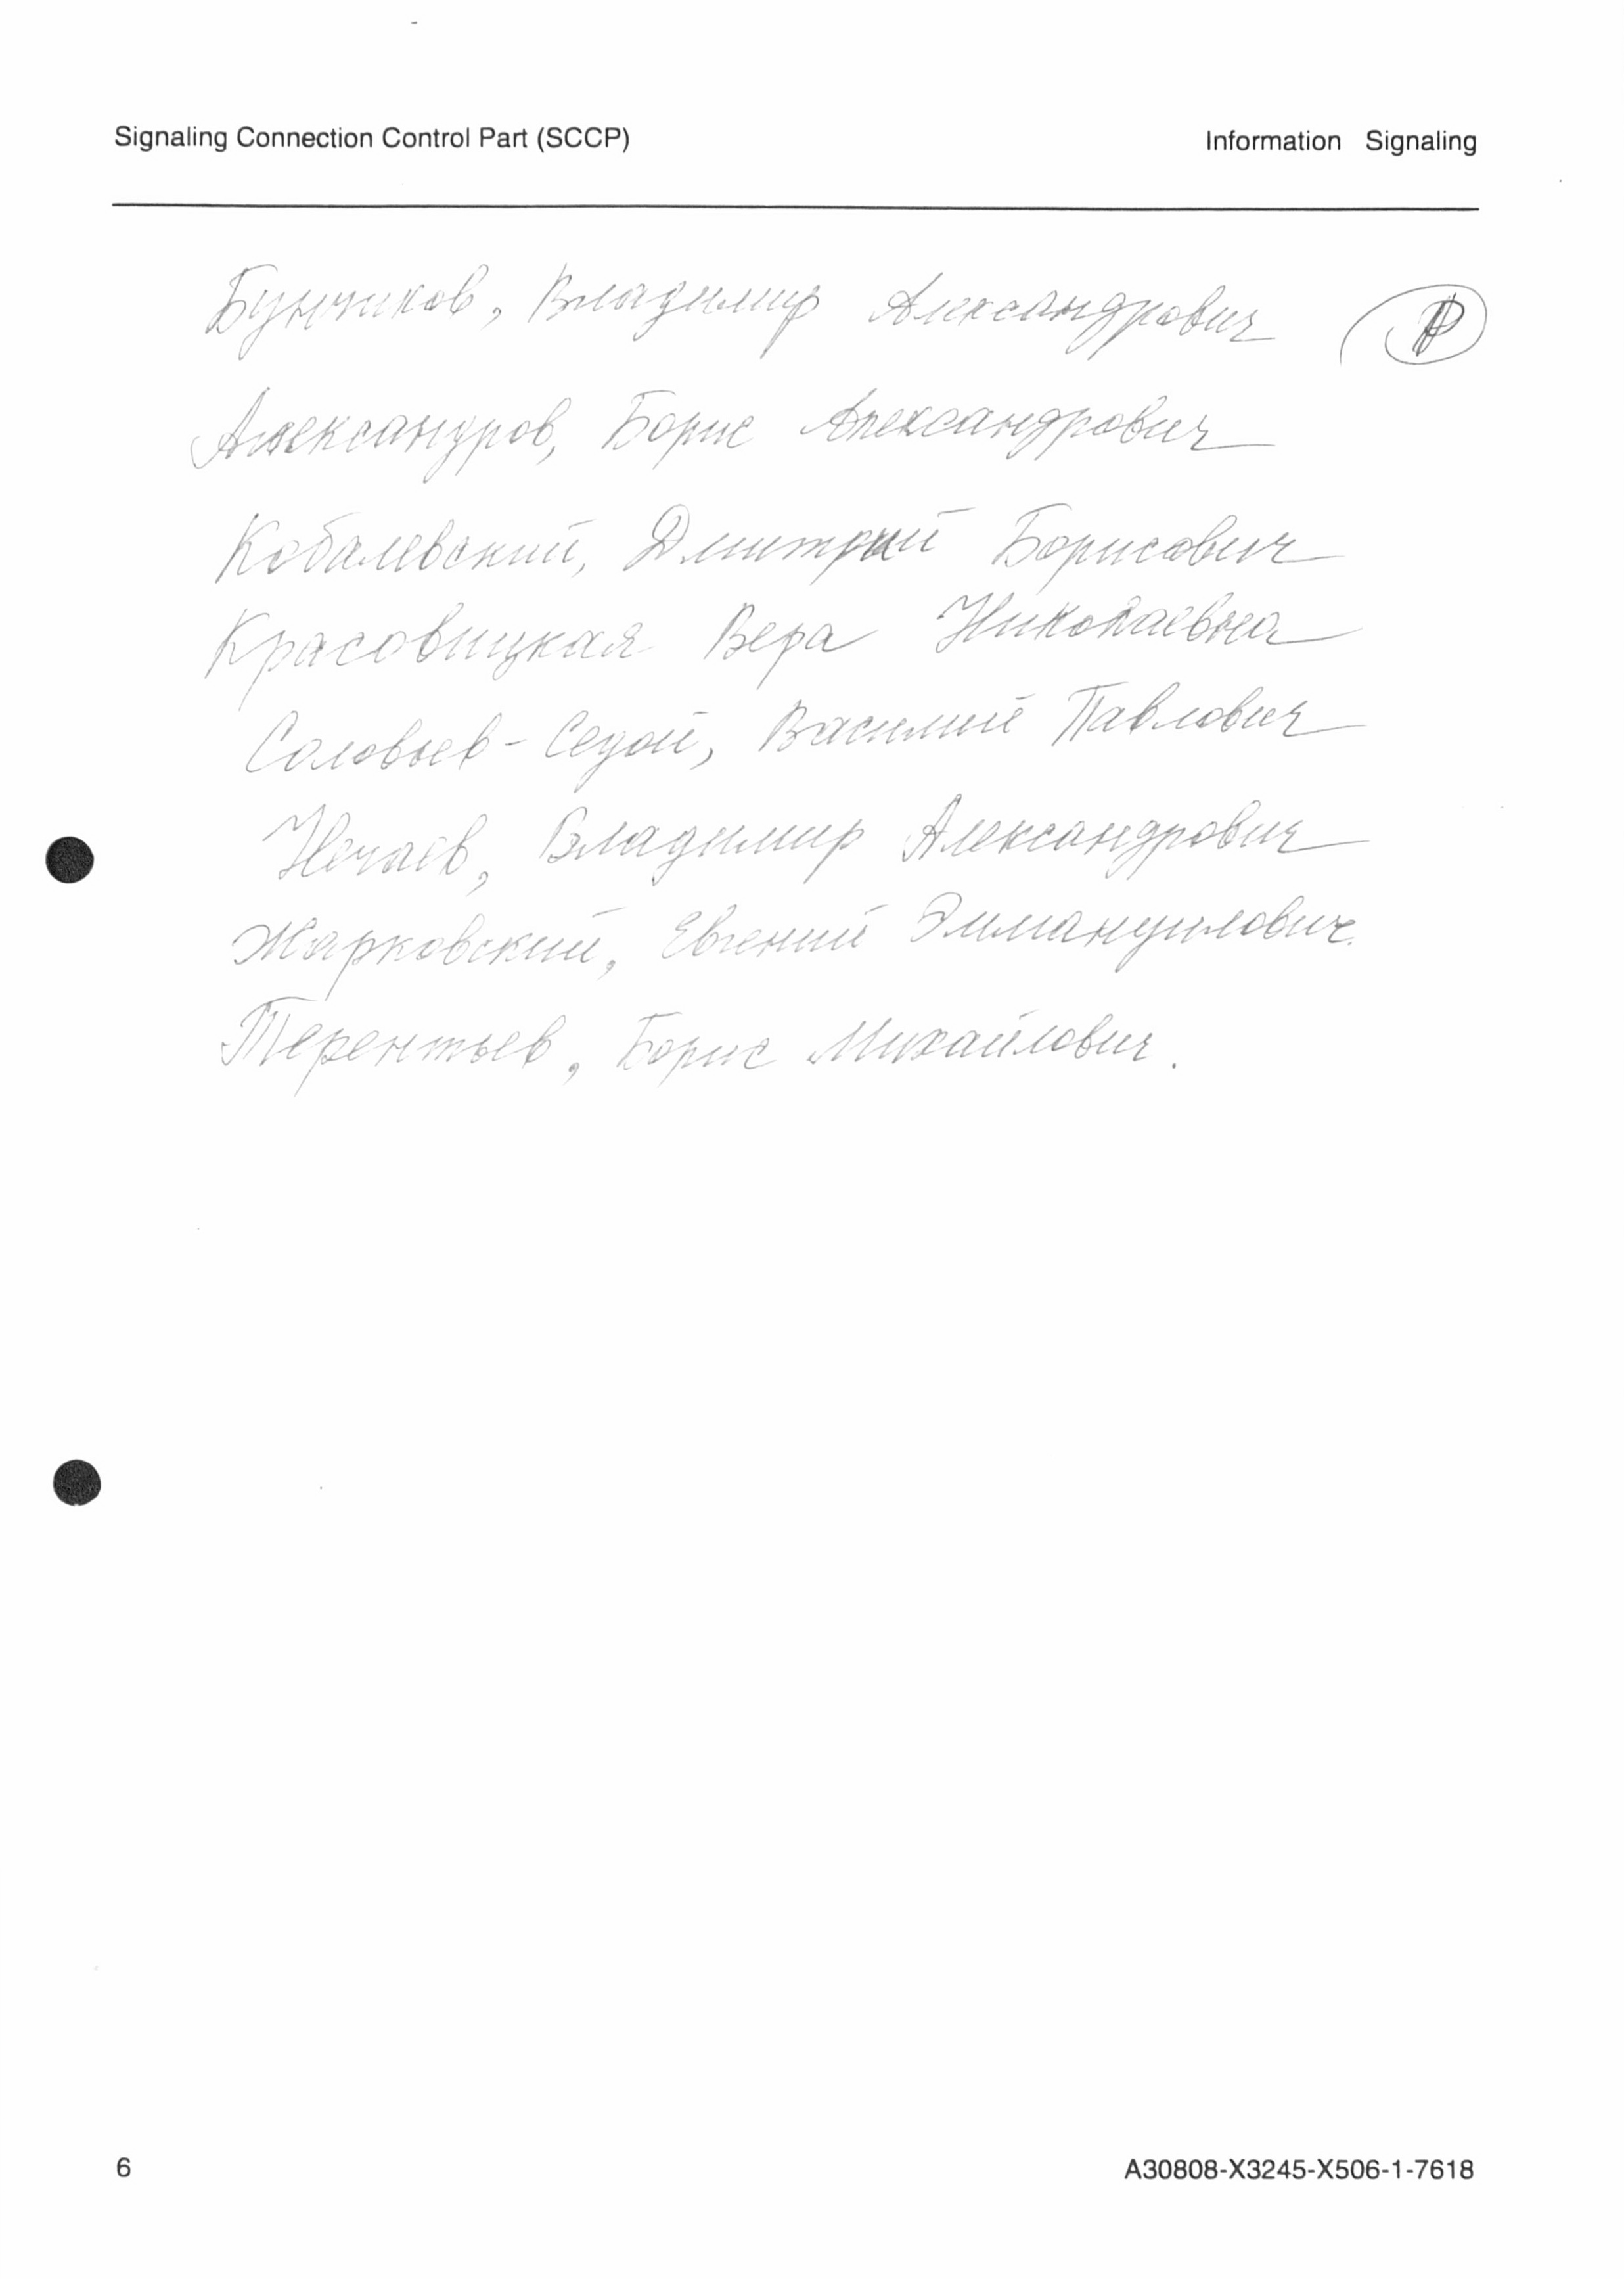 Signaling Connection Control Part (SCCP) Information Signaling
Бунчиков, Владимир Александрович
Александров, Борис Александрович
Кобалевский, Дмитрий Борисович
Красовицкая Вера Николаевна
Соловьев-Седой, Василий Павлович
Нечаев, Владимир Александрович
Жарковский, Евгений Эммануилович.
Терентьев, Борис Михайлович.
6 A30808-X3245-X506-1-7618